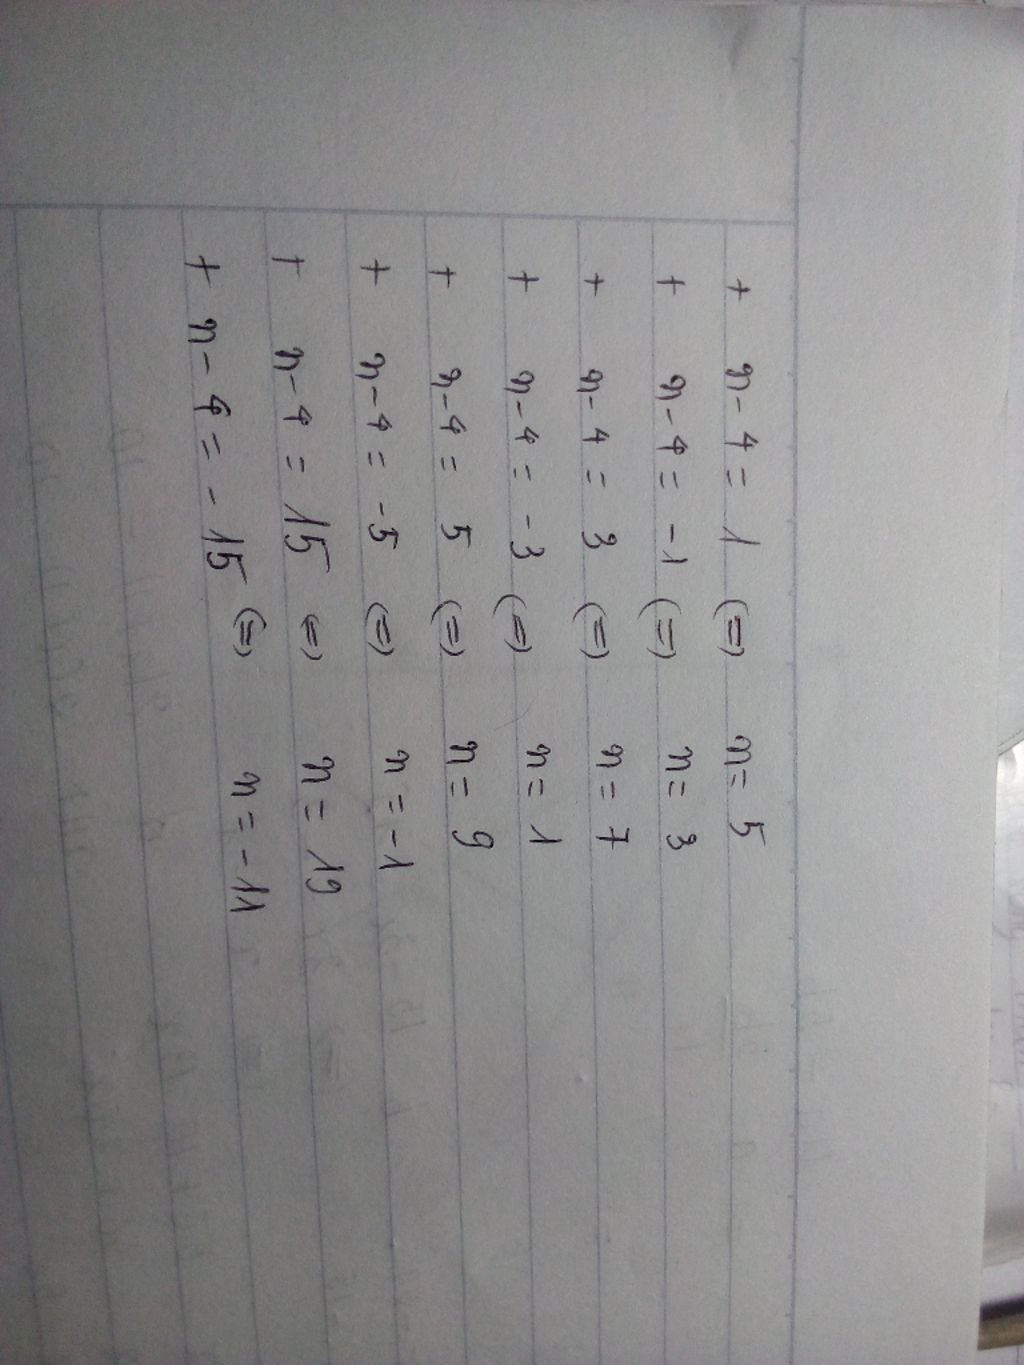 + n - 4 = 1 (=) n = 5
+ n - 4 = -1 (=) n = 3
+ n - 4 = 3 (=) n = 7
+ n - 4 = -3 (=) n = 1
+ n - 4 = 5 (=) n = 9
+ n - 4 = -5 (=) n = -1
+ n - 4 = 15 (=) n = 19
+ n - 4 = -15 (=) n = -11